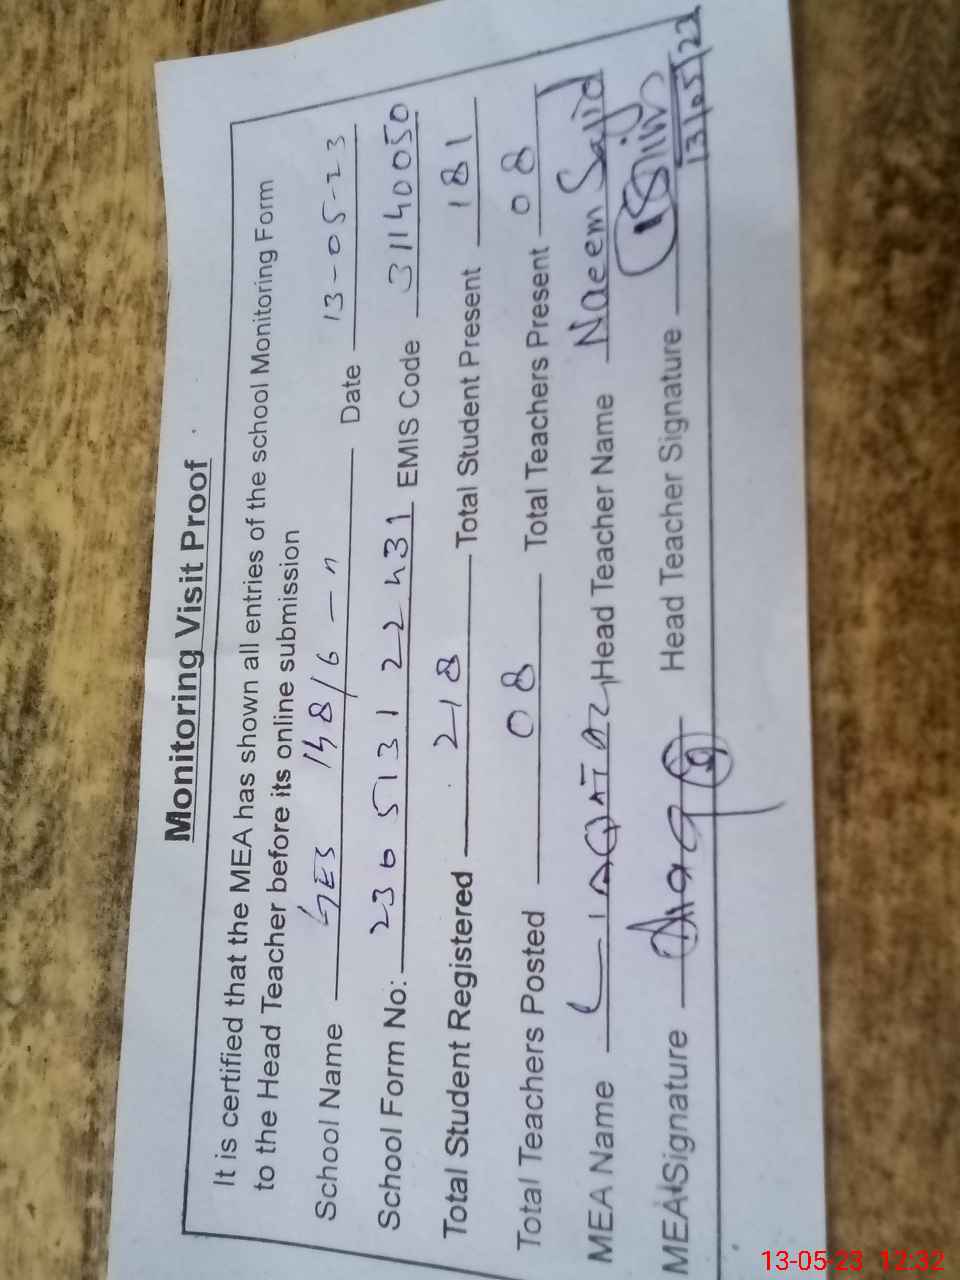 Monitoring Visit Proof
It is certified that the MEA has shown all entries of the school Monitoring Form
to the Head Teacher before its online submission
School Name GES 148/6-R Date 13-05-23
School Form No: 230513122431 EMIS Code 31140050
Total Student Registered 218 Total Student Present 181
Total Teachers Posted 08 Total Teachers Present 08
MEA Name Head Teacher Name Naeem Sajid
MEA Signature Head Teacher Signature
13-05-23 12:32